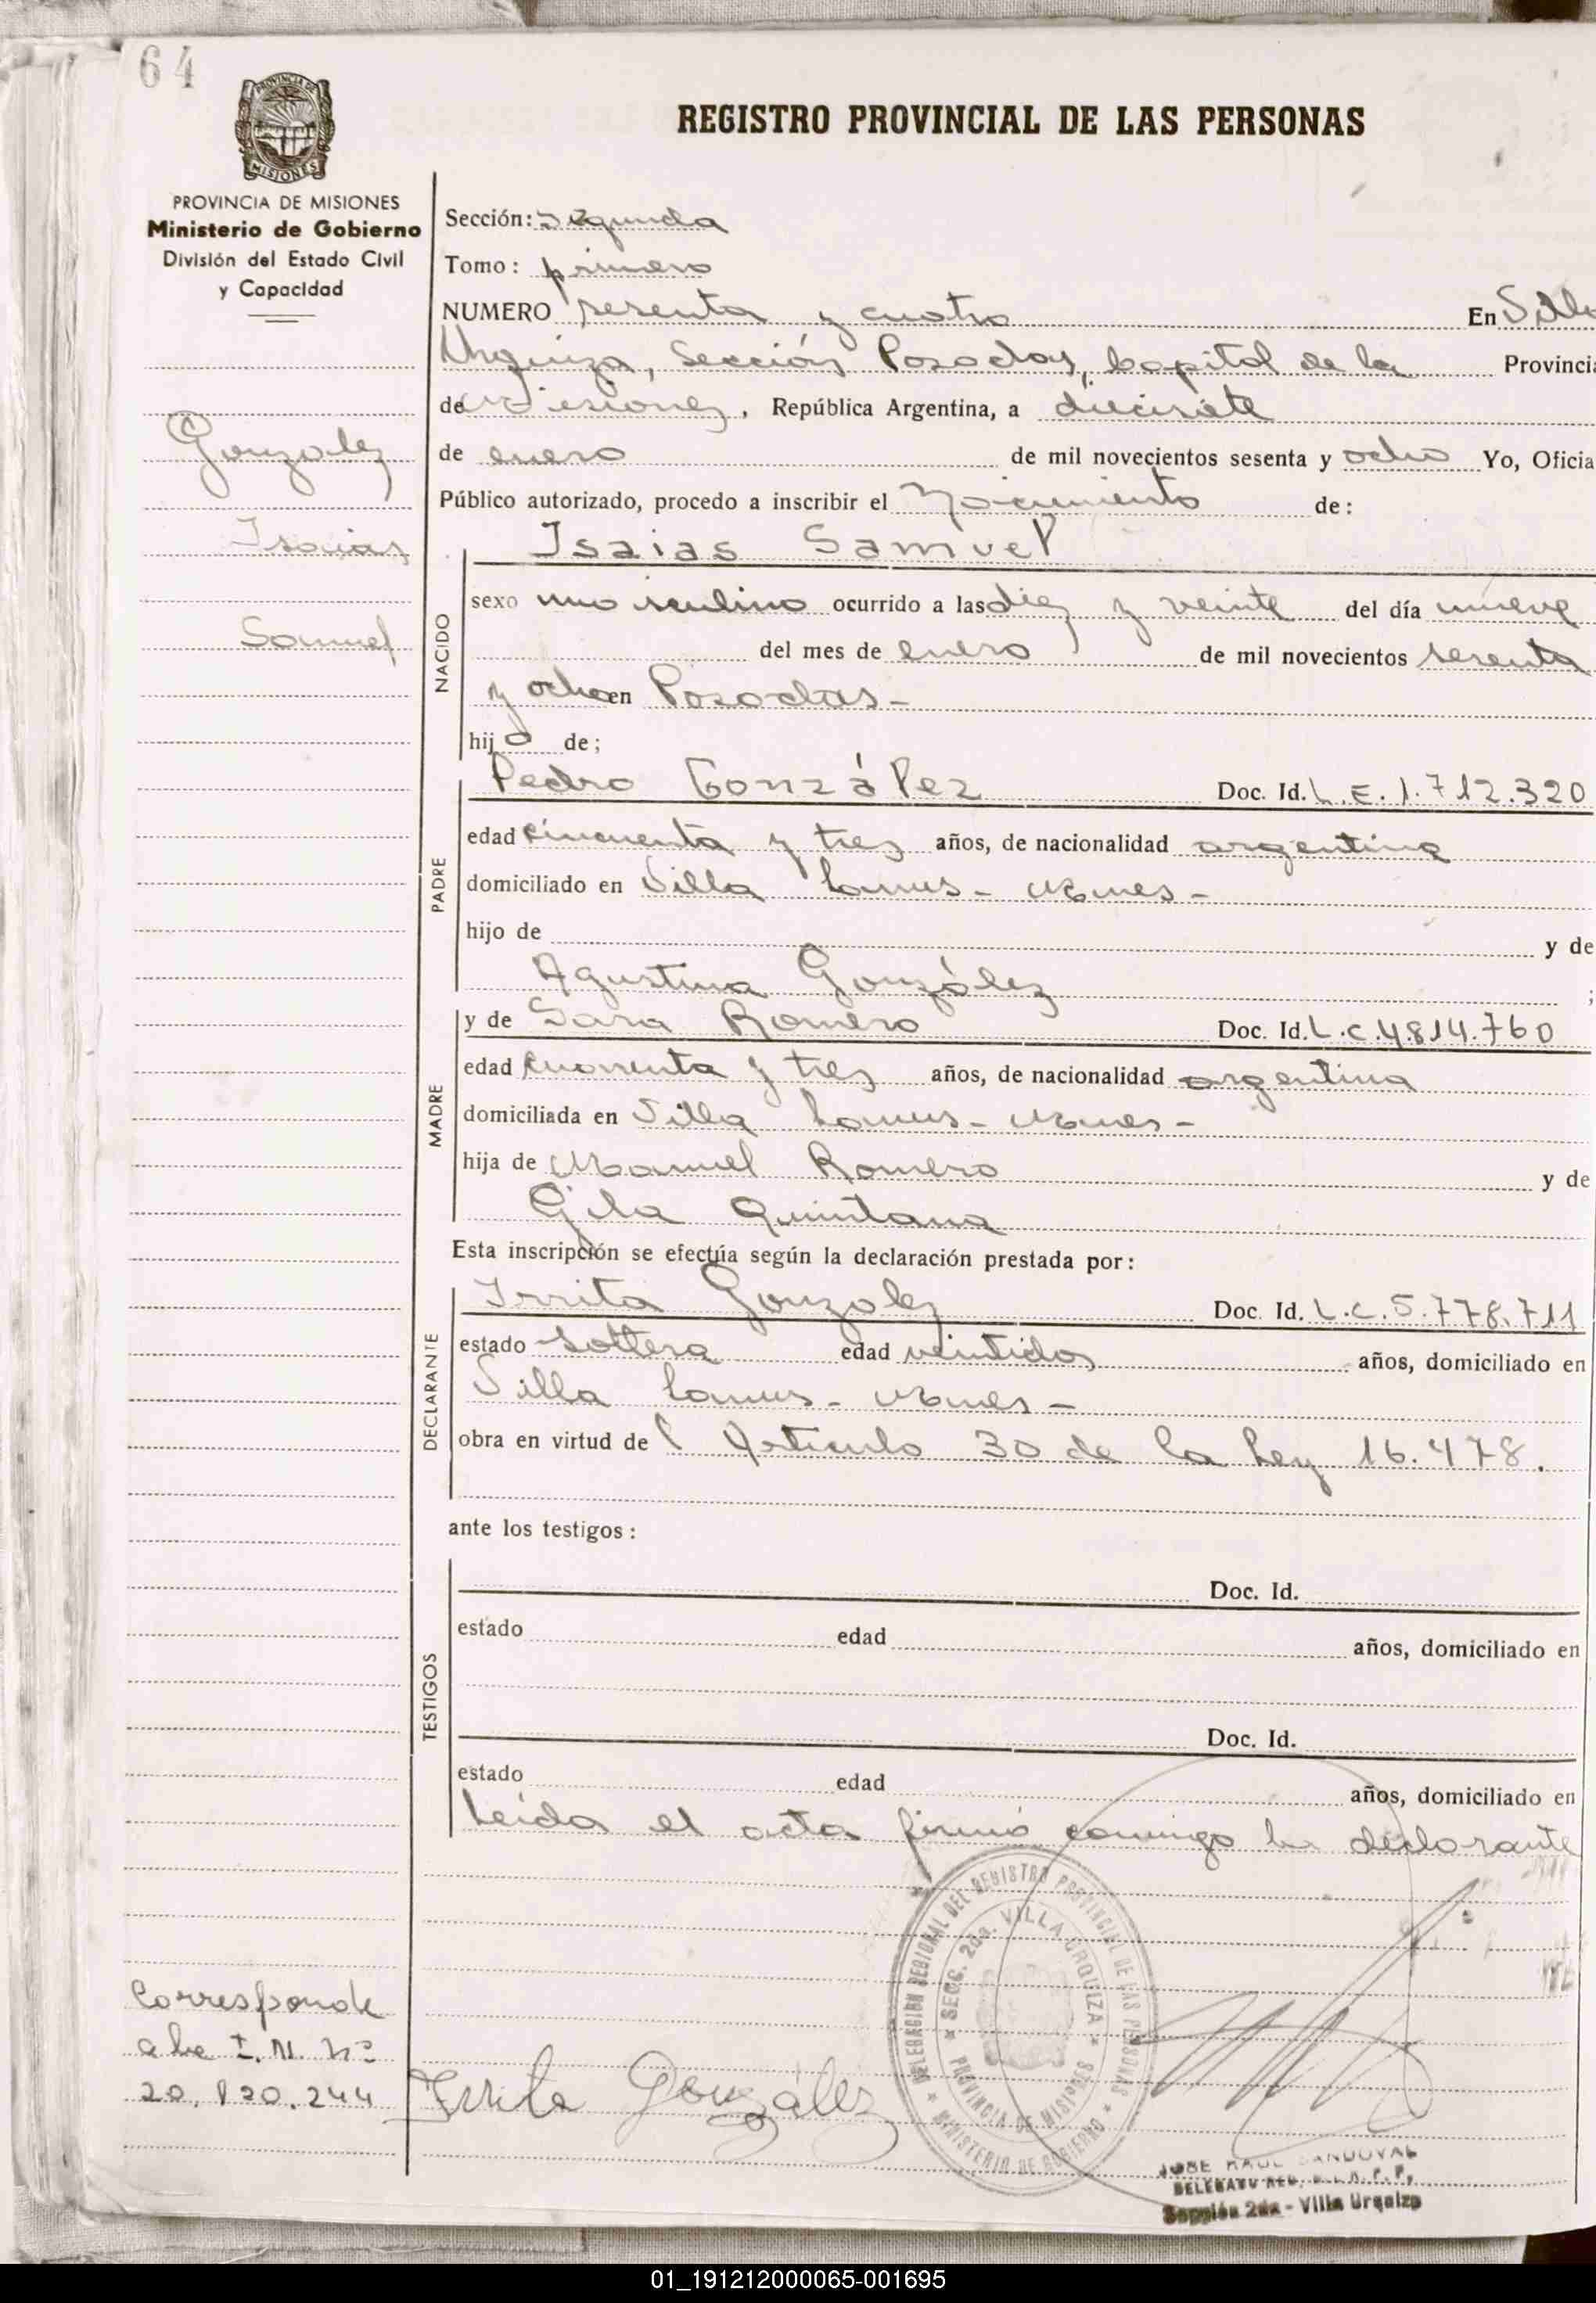 64
PROVINCIA DE MISIONES
REGISTRO PROVINCIAL DE LAS PERSONAS
PROVINCIA DE MISIONES
Ministerio de Gobierno
División del Estado Civil
y Capacidad
Gonzalez
Isaias
Samuel
Sección: Segunda
Tomo: primero
NUMERO sesenta y cuatro En Villa
Urquiza, Sección Posadas, Capital de la Provincia
de Misiones, República Argentina, a diecisiete
de enero de mil novecientos sesenta y ocho Yo, Oficia
Público autorizado, procedo a inscribir el Nacimiento de:
Isaias Samuel
NACIDO
sexo masculino ocurrido a las diez y veinte del día nueve
del mes de enero de mil novecientos sesenta
y ocho en Posadas-
hijo de;
Pedro González Doc. Id. L.E. 1.712.320
PADRE
edad cincuenta y tres años, de nacionalidad argentina
domiciliado en Villa Lanus- Mnes-
hijo de y de
Agustina González ;
y de Sara Romero Doc. Id. L.C. 4.814.760
MADRE
edad cuarenta y tres años, de nacionalidad argentina
domiciliada en Villa Lanus- Mnes-
hija de Manuel Romero y de
Gila Quintana
Esta inscripción se efectúa según la declaración prestada por:
Irrita Gonzalez Doc. Id. L.C. 5.778.711
DECLARANTE
estado soltera edad veintidos años, domiciliado en
Villa Lanus- Mnes-
obra en virtud del Artículo 30 de la Ley 16.478.
ante los testigos:
Doc. Id.
TESTIGOS
estado edad años, domiciliado en
Doc. Id.
estado edad años, domiciliado en
Leída el acta firmó conmigo la declarante
DELEGACION REGIONAL DEL REGISTRO PROVINCIAL DE LAS PERSONAS
SECC. 2da. VILLA URQUIZA
PROVINCIA DE MISIONES
MINISTERIO DE GOBIERNO
Corresponde
a la I.N. Nº
20.120.244
Irrita González
JOSE RAUL SANDOVAL
DELEGADO REG.
Sección 2da - Villa Urquiza
01_191212000065-001695